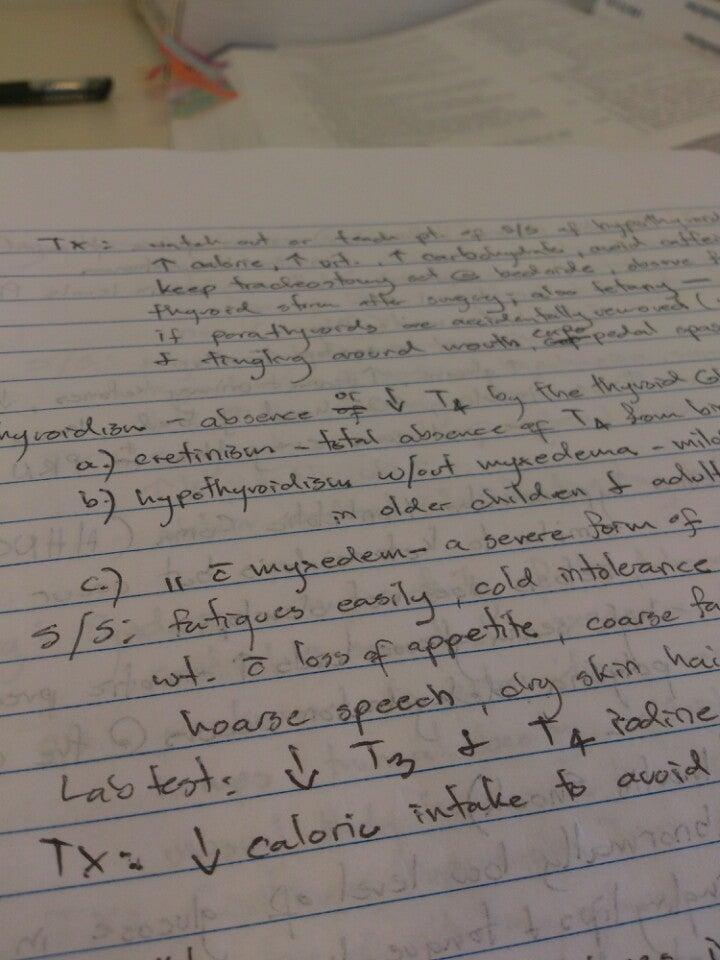 Tx: watch out or teach pt. of s/s of hypothyroid
↑ calorie, ↑ vit. ↑ carbohydrate, avoid caffe
keep tracheostomy set @ bedside, observe f
thyroid storm after surgery; also tetany —
if parathyroids are accidentally removed (
& tingling around mouth, carpopedal spas
hyroidism - absence or ↓ T4 by the thyroid
a.) cretinism - total absence of T4 from bi
b.) hypothyroidism w/out myxedema - mild
in older children & adult
c.) " c̄ myxedem- a severe form of
S/S: fatigues easily, cold intolerance
wt. c̄ loss of appetite, coarse fa
hoarse speech, dry skin hai
Lab test: ↓ T3 & T4 iodine
Tx: ↓ caloric intake to avoid